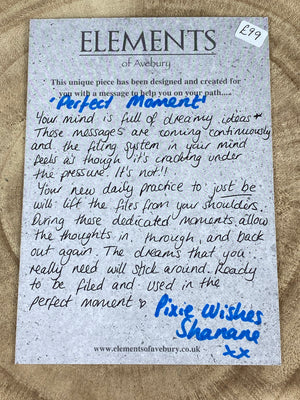 £99
ELEMENTS
of Avebury
This unique piece has been designed and created for
you with a message to help you on your path.....
'Perfect Moment'
Your mind is full of dreamy ideas
These messages are coming continuously
and the filing system in your mind
feels as though it's cracking under
the pressure. It's not!!
Your new daily practice to just be
will lift the files from your shoulders.
During these dedicated moments allow
the thoughts in, through, and back
out again. The dreams that you
really need will stick around. Ready
to be filed and used in the
perfect moment ♡
Pixie Wishes
Shanane
xx
www.elementsofavebury.co.uk